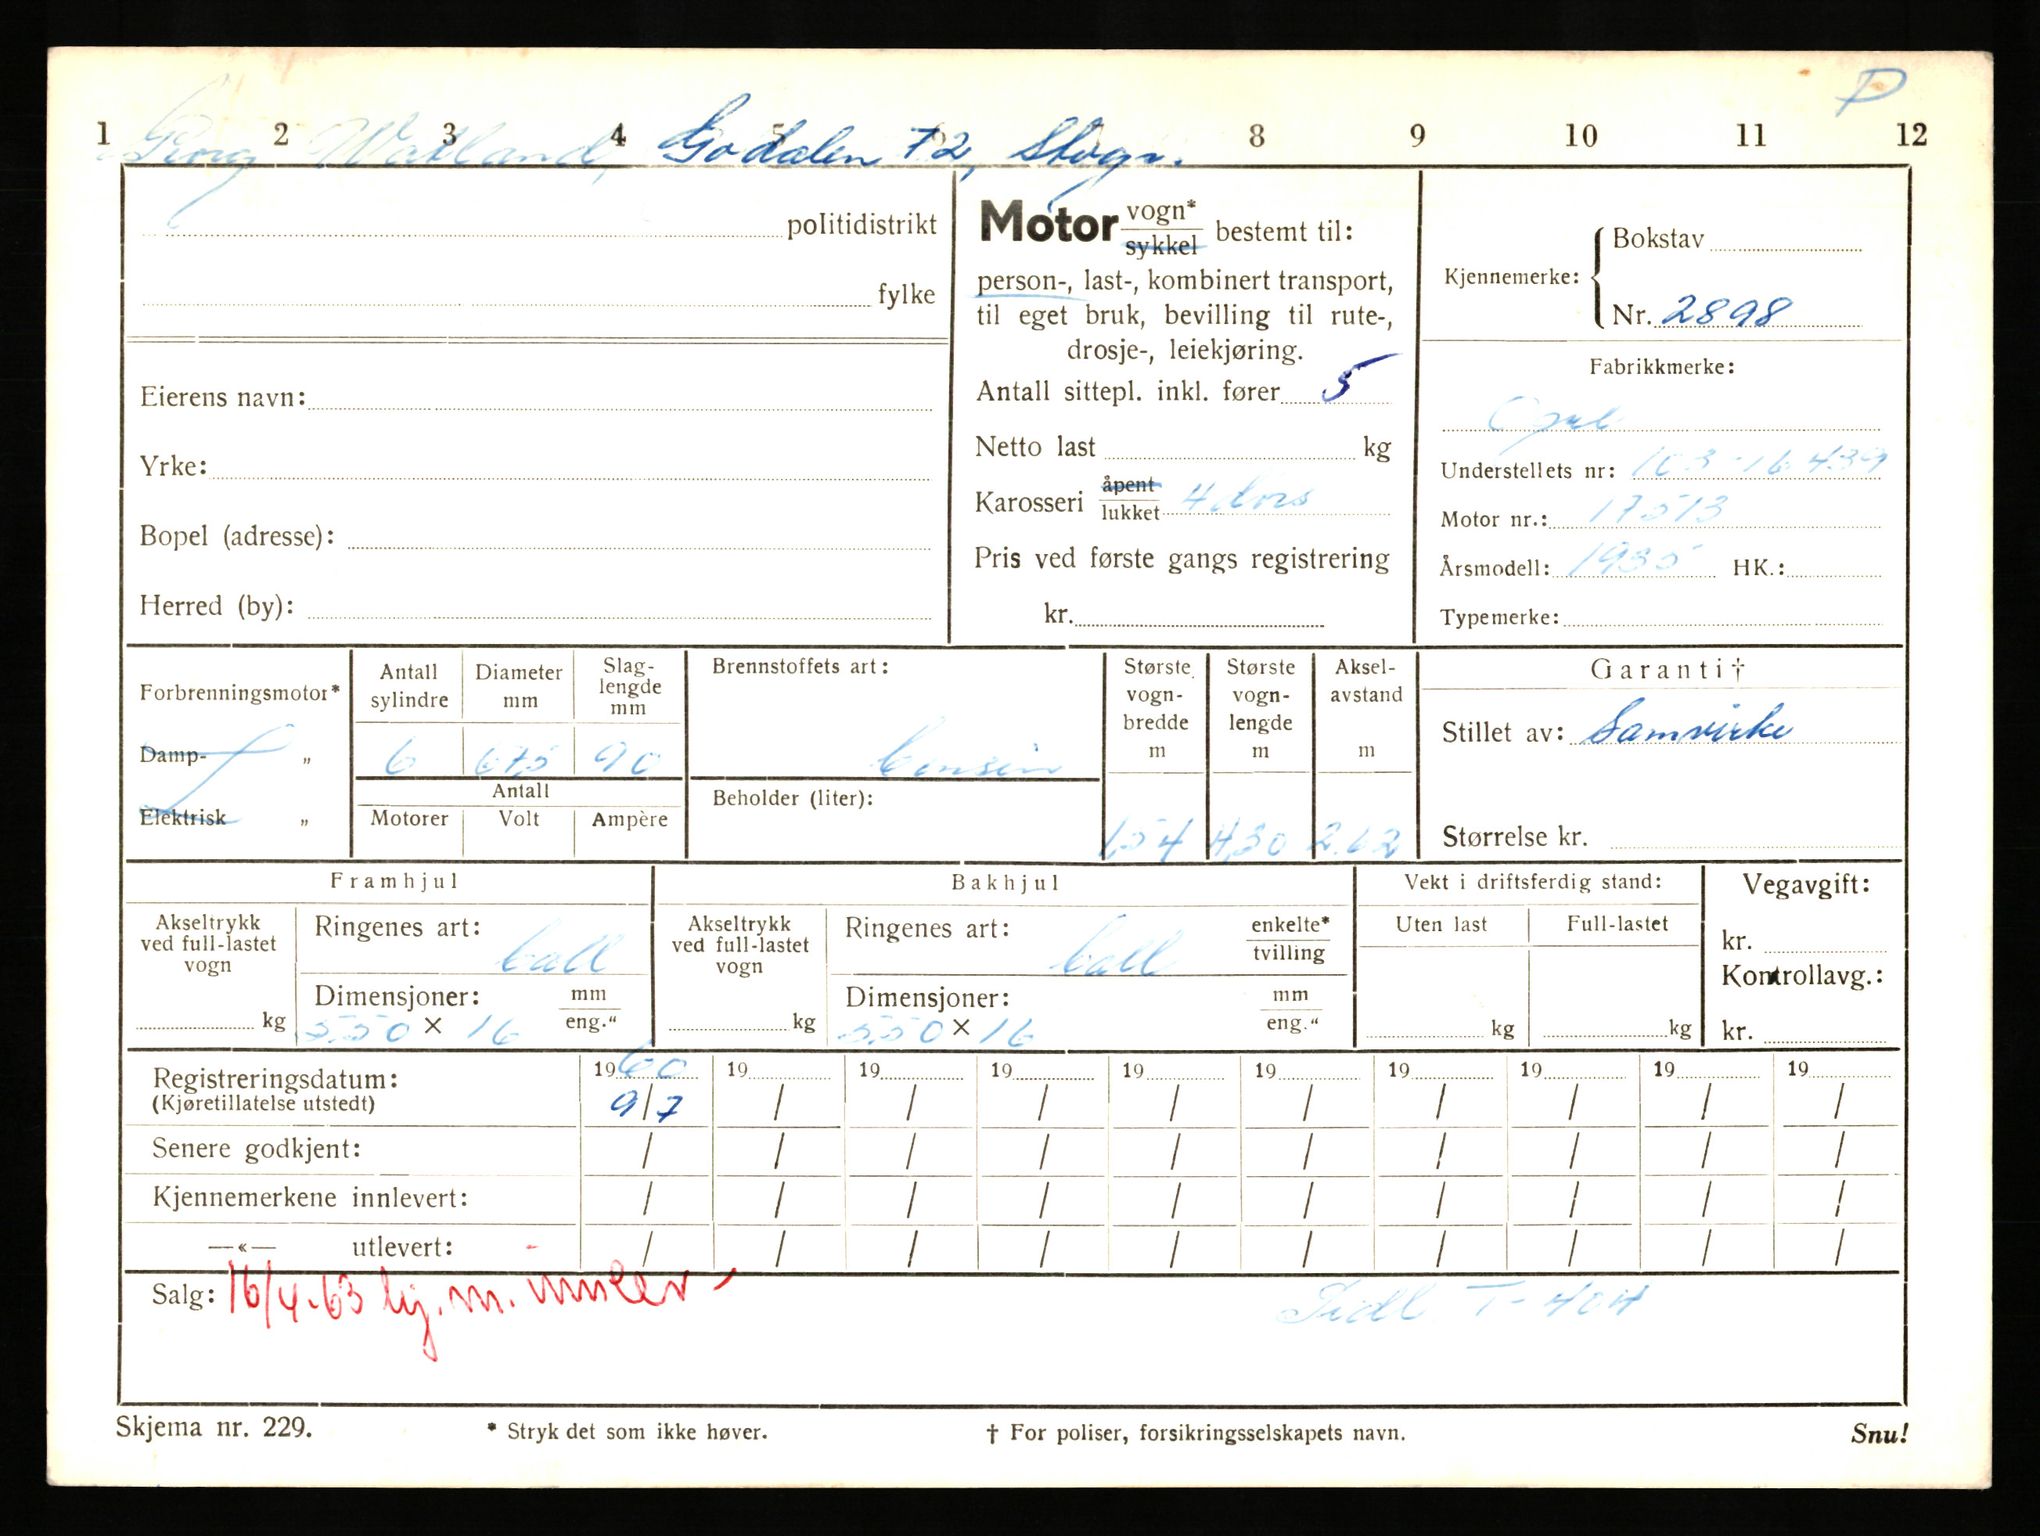 P
1 2 3 4 5 7 8 9 10 11 12
Georg Watland, Godalen 72, Stvgr.
politidistrikt
fylke
Eierens navn:
Yrke:
Bopel (adresse):
Herred (by):
Motor vogn*
sykkel bestemt til:
person-, last-, kombinert transport,
til eget bruk, bevilling til rute-,
drosje-, leiekjøring.
Antall sittepl. inkl. fører 5
Netto last kg
Karosseri åpent
lukket 4 dørs
Pris ved første gangs registrering
kr.
Kjennemerke: Bokstav
Nr. 2898
Fabrikkmerke:
Opel
Understellets nr: 103-16439
Motor nr.: 17513
Årsmodell: 1935 HK.:
Typemerke:
Forbrenningsmotor*
Damp- „
Elektrisk „
Antall sylindre Diameter mm Slag-lengde mm
6 67,5 90
Antall
Motorer Volt Ampère
Brennstoffets art:
bensin
Beholder (liter):
Største vogn-bredde m
1,54
Største vogn-lengde m
4,30
Aksel-avstand m
2.62
Garanti†
Stillet av: Samvirke
Størrelse kr.
Framhjul
Akseltrykk ved full-lastet vogn
kg
Ringenes art:
ball
Dimensjoner: mm
eng.“
5.50 × 16
Bakhjul
Akseltrykk ved full-lastet vogn
kg
Ringenes art: enkelte*
tvilling
ball
Dimensjoner: mm
eng.“
5.50 × 16
Vekt i driftsferdig stand:
Uten last Full-lastet
kg kg
Vegavgift:
kr.
Kontrollavg.:
kr.
Registreringsdatum: 1960 19 19 19 19 19 19 19 19 19
(Kjøretillatelse utstedt) 9/7 / / / / / / / / /
Senere godkjent: / / / / / / / / / /
Kjennemerkene innlevert: / / / / / / / / / /
—«— utlevert: / / / / / / / / / /
Salg: 16/4-63 kj.m. innlev.
Tidl. T-404
Skjema nr. 229. * Stryk det som ikke høver. † For poliser, forsikringsselskapets navn. Snu!